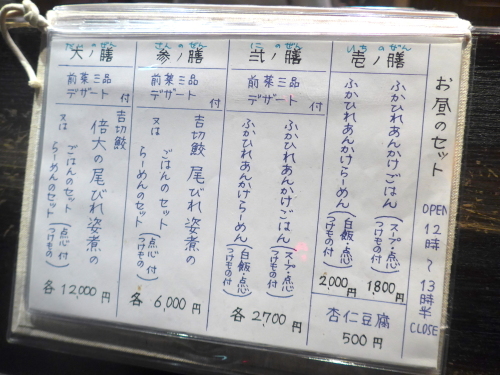 お昼のセット
OPEN
12時
〜
13時半
CLOSE
いちのぜん
壱ノ膳
ふかひれあんかけごはん(スープ・点心つけもの付)
1,800円
ふかひれあんかけらーめん(白飯・点心つけもの付)
2,000円
杏仁豆腐
500円
にのぜん
弐ノ膳
前菜三品
デザート 付
ふかひれあんかけごはん(スープ・点心つけもの付)
ふかひれあんかけらーめん(白飯・点心つけもの付)
各 2,700円
さんのぜん
参ノ膳
前菜三品
デザート 付
吉切鮫 尾びれ姿煮の
ごはんのセット
又は
らーめんのセット(点心付つけもの付)
各 6,000円
だいのぜん
大ノ膳
前菜三品
デザート 付
吉切鮫
倍大の尾びれ姿煮の
ごはんのセット
又は
らーめんのセット(点心付つけもの付)
各 12,000円